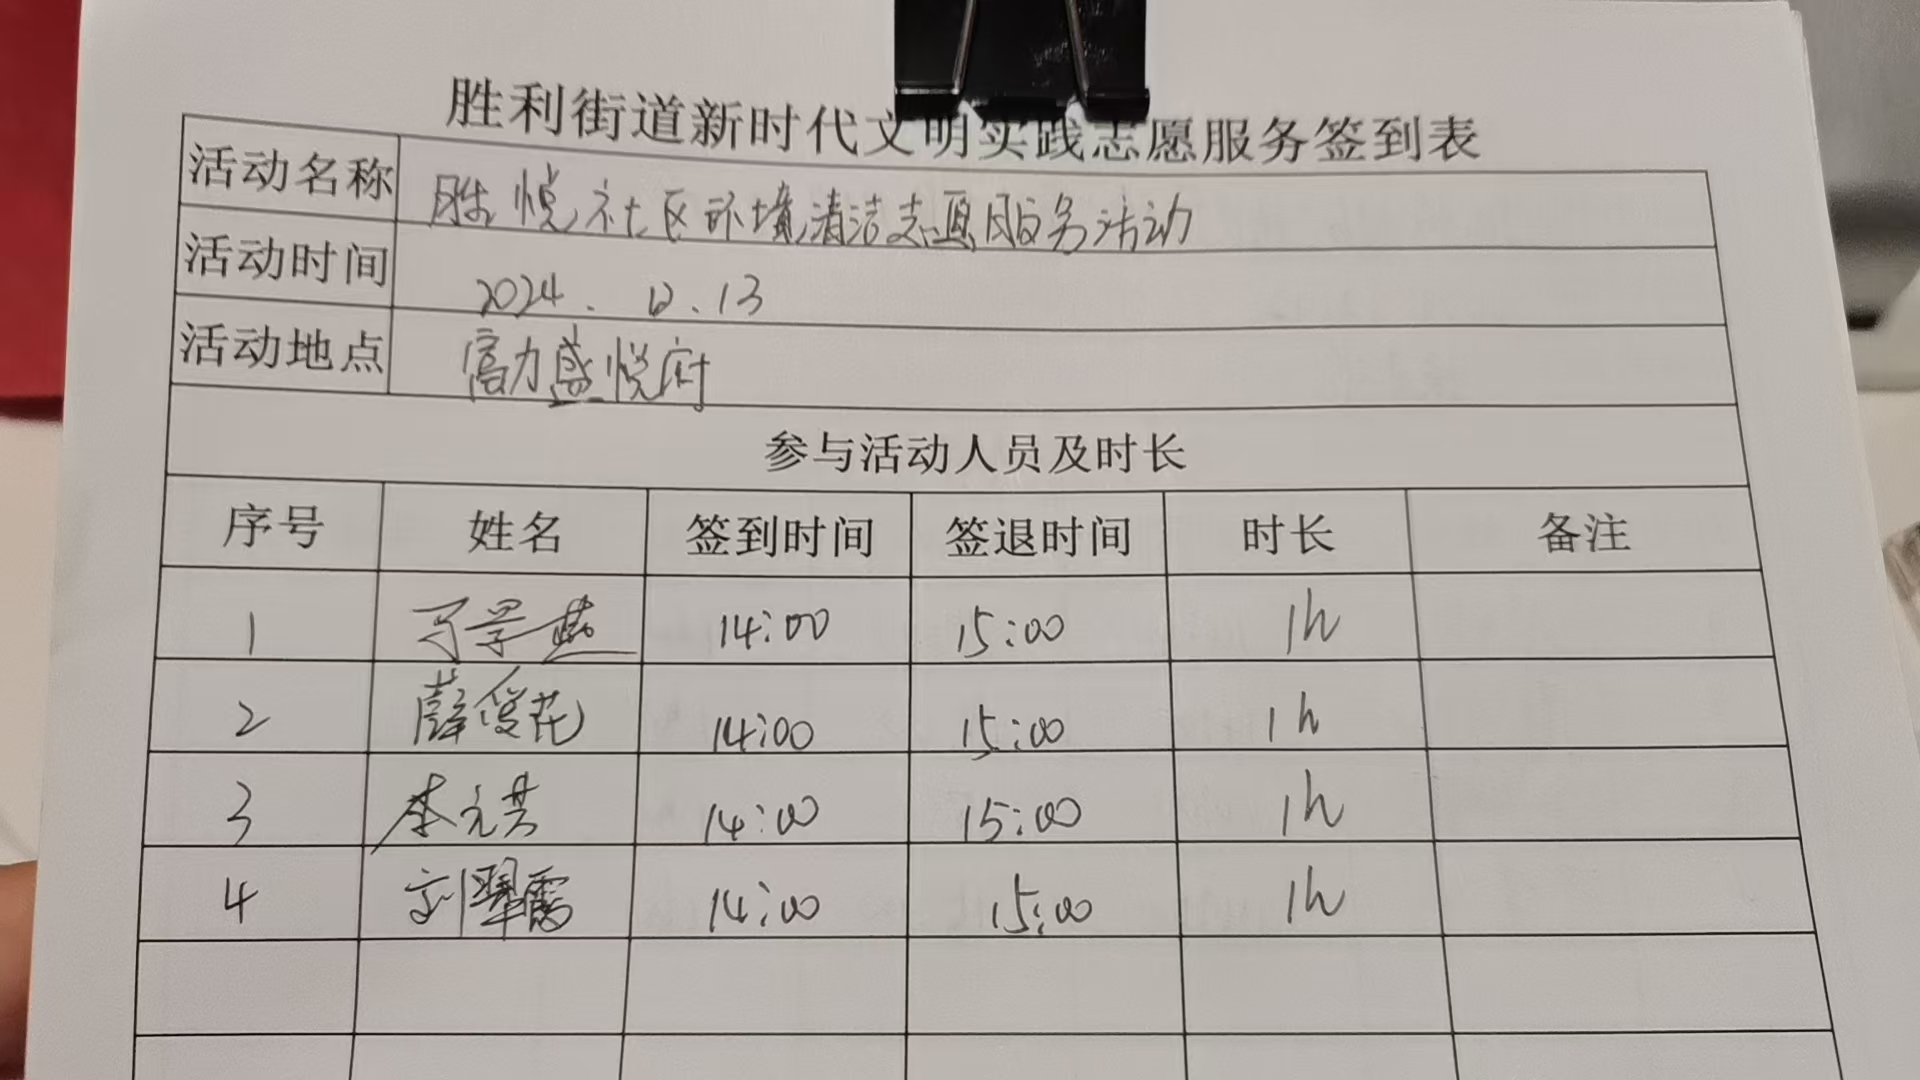 胜利街道新时代文明实践志愿服务签到表
活动名称 胜悦社区环境清洁志愿服务活动
活动时间 2024.12.13
活动地点 富力盛悦府
参与活动人员及时长
序号 姓名 签到时间 签退时间 时长 备注
1 14:00 15:00 1h
2 薛俊花 14:00 15:00 1h
3 李元芳 14:00 15:00 1h
4 刘翠霞 14:00 15:00 1h